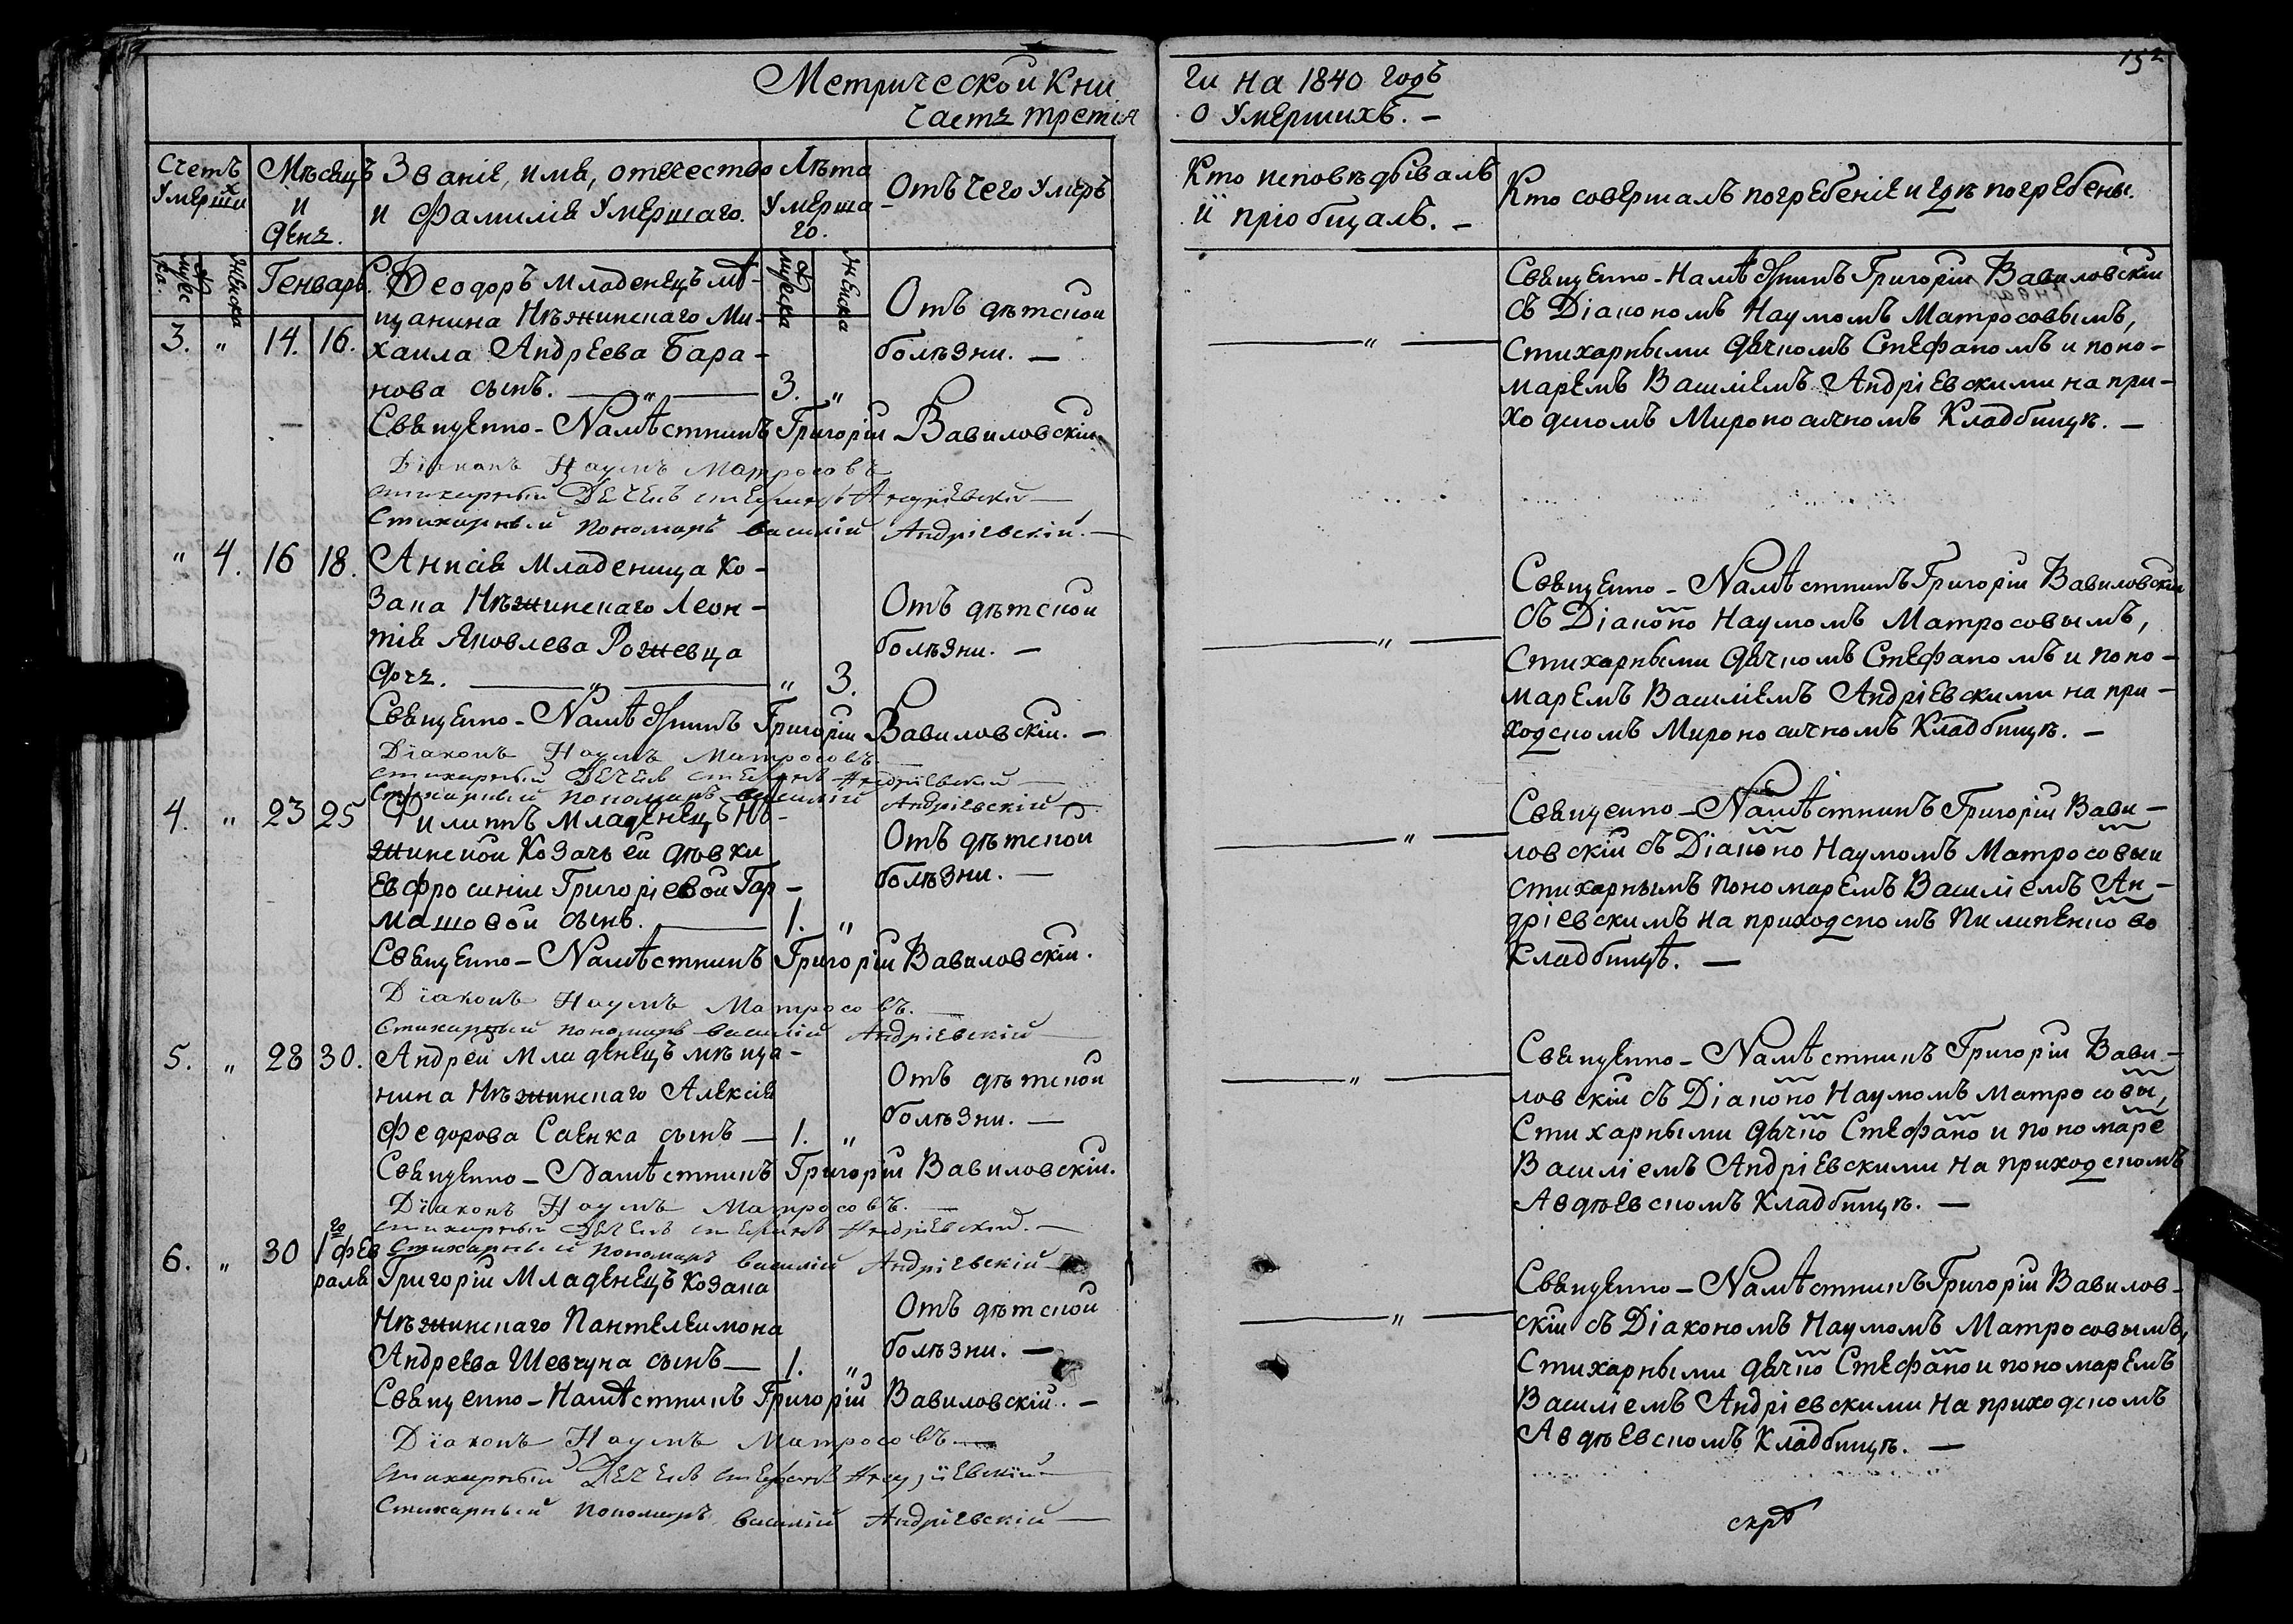 152
Метрической Кни
ги на 1840 годъ
Часть третія
о Умершихъ. —
Счетъ Умерших
Мѣсяцъ и День.
Званіе, имя, отечество и Фамилія Умершаго.
Лѣта Умерша го.
Отъ чего Умеръ
Кто исповѣдывалъ и пріобщалъ. —
Кто совершалъ погребеніе и гдѣ погребены.
Мужеска.
Женска
Генварь.
Мужеска
Женска
3. " 14. 16.
Ѳеодоръ Младенецъ мѣ-
щанина Нѣжинскаго Ми-
хаила Андреева Бара-
нова сынъ. — " — 3. "
Отъ дѣтской
болѣзни. —
— " —
Священно-Намѣстникъ Григорій Вавиловскій
съ Діакономъ Наумомъ Матросовымъ,
Стихарными Дячкомъ Стефаномъ и поно-
маремъ Василіемъ Андріевскими на при-
ходскомъ Мироносичномъ Кладбищѣ. —
Священно-Намѣстникъ Григорій Вавиловскій.
Діаконъ Наумъ Матросовъ
Стихарный Дечекъ Стефанъ Андріевскій —
Стихарный пономаръ Василій Андріевскій. —
" 4. 16 18.
Анисія Младеница Ко-
зака Нѣжинскаго Леон-
тія Яковлева Рожевца
Дочь. — " — " 3.
Отъ дѣтской
болѣзни. —
— " —
Священно-Намѣстникъ Григорій Вавиловскій
съ Діаконо Наумомъ Матросовымъ,
Стихарными Дячкомъ Стефаномъ и поно-
маремъ Василіемъ Андріевскими на при-
ходскомъ Мироносичномъ Кладбищѣ. —
Священно-Намѣстникъ Григорій Вавиловскій. —
Діаконъ Наумъ Матросовъ —
Стихарный Дечек Стефанъ Андріевскій —
Стихарный пономаръ Василій Андріевскій —
4. " 23 25
Филиппъ Младенецъ Нѣ-
жинской Козачьей дѣвки
Евфросиніи Григоріевой Гар-
машовой сынъ. — 1. "
Отъ дѣтской
болѣзни. —
— " —
Священно-Намѣстникъ Григорій Вави-
ловскій съ Діаконо Наумомъ Матросовым
Стихарнымъ пономаремъ Василіемъ Ан-
дріевскимъ на приходскомъ Пилипенково
Кладбищѣ. —
Священно-Намѣстникъ Григорій Вавиловскій.
Діаконъ Наумъ Матросовъ. —
Стихарный пономаръ Василій Андріевскій —
5. " 28 30.
Андрей Младенецъ мѣща-
нина Нѣжинскаго Алексія
Федорова Саенка сынъ — 1. "
Отъ дѣтской
болѣзни. —
— " —
Священно-Намѣстникъ Григорій Вави-
ловскій съ Діаконо Наумомъ Матросовы,
Стихарными Дячко Стефано и пономаре
Василіемъ Андріевскими на приходскомъ
Авдѣевскомъ Кладбищѣ. —
Священно-Намѣстникъ Григорій Вавиловскій.
Діаконъ Наумъ Матросовъ. —
Стихарный Дечекъ Стефанъ Андріевский. —
Стихарный пономаръ Василій Андріевскій —
6. " 30 1го Фев
раля
Григорій Младенецъ Козака
Нѣжинскаго Пантелеимона
Андреева Шевчука сынъ — 1. "
Отъ дѣтской
болѣзни. —
— " —
Священно-Намѣстникъ Григорій Вавилов-
скій съ Діакономъ Наумомъ Матросовымъ,
Стихарными Дячко Стефано и пономаремъ
Василіемъ Андріевскими на приходскомъ
Авдѣевскомъ Кладбищѣ. —
Священно-Намѣстникъ Григорій Вавиловскій. —
Діаконъ Наумъ Матросовъ —
Стихарный Дечекъ Стефанъ Андріевскій —
Стихарный пономаръ Василій Андріевскій —